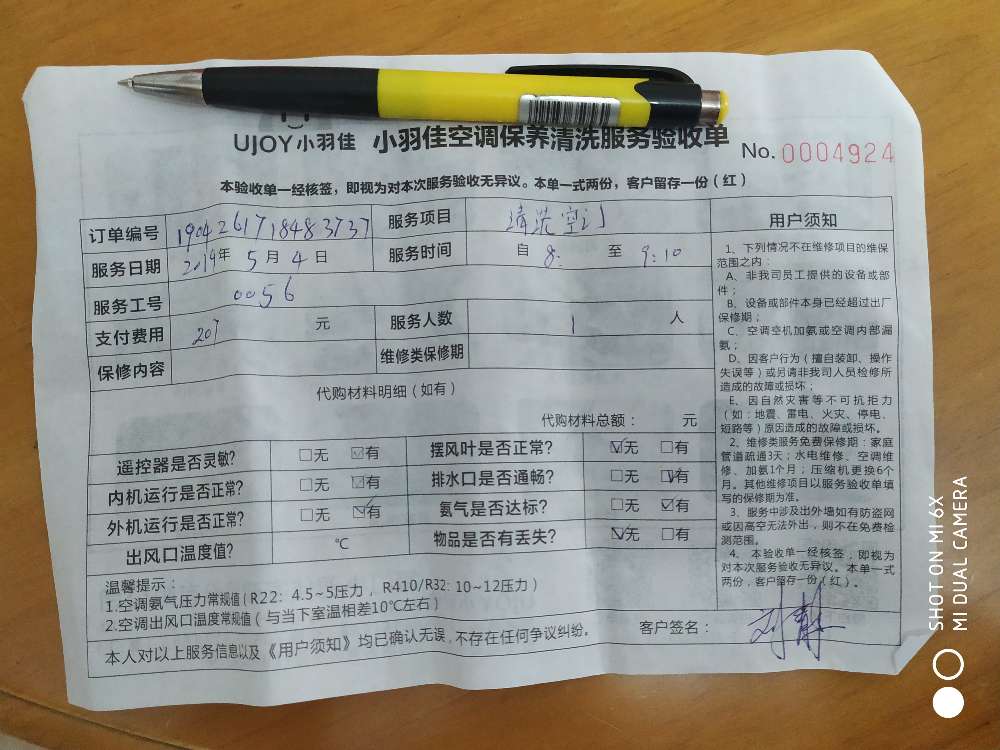 UJOY小羽佳 小羽佳空调保养清洗服务验收单 No. 0004924
本验收单一经核签，即视为对本次服务验收无异议。本单一式两份，客户留存一份（红）
订单编号 190426171848 3737 服务项目 清洗空门
服务日期 2019年 5 月 4 日 服务时间 自 8: 至 9:10
服务工号 0056
支付费用 207 元 服务人数 1 人
保修内容 维修类保修期
代购材料明细（如有）
代购材料总额： 元
遥控器是否灵敏？ □无 ☑有 摆风叶是否正常？ ☑无 □有
内机运行是否正常？ □无 ☑有 排水口是否通畅？ □无 ☑有
外机运行是否正常？ □无 ☑有 氨气是否达标？ □无 ☑有
出风口温度值？ ℃ 物品是否有丢失？ ☑无 □有
温馨提示：
1.空调氨气压力常规值（R22：4.5~5压力， R410/R32: 10~12压力）
2.空调出风口温度常规值（与当下室温相差10℃左右）
本人对以上服务信息以及《用户须知》均已确认无误，不存在任何争议纠纷。 客户签名：
用户须知
1、下列情况不在维修项目的维保
范围之内：
A、非我司员工提供的设备或部
件；
B、设备或部件本身已经超过出厂
保修期；
C、空调空机加氨或空调内部漏
氨；
D、因客户行为（擅自装卸、操作
失误等）或另请非我司人员检修所
造成的故障或损坏；
E、因自然灾害等不可抗拒力
（如：地震、雷电、火灾、停电、
短路等）原因造成的故障或损坏。
2、维修类服务免费保修期：家庭
管道疏通3天；水电维修、空调维
修、加氨1个月；压缩机更换6个
月。其他维修项目以服务验收单填
写的保修期为准。
3、服务中涉及出外墙如有防盗网
或因高空无法外出，则不在免费检
测范围。
4、本验收单一经核签，即视为
对本次服务验收无异议。本单一式
两份，客户留存一份（红）。
SHOT ON MI 6X
MI DUAL CAMERA